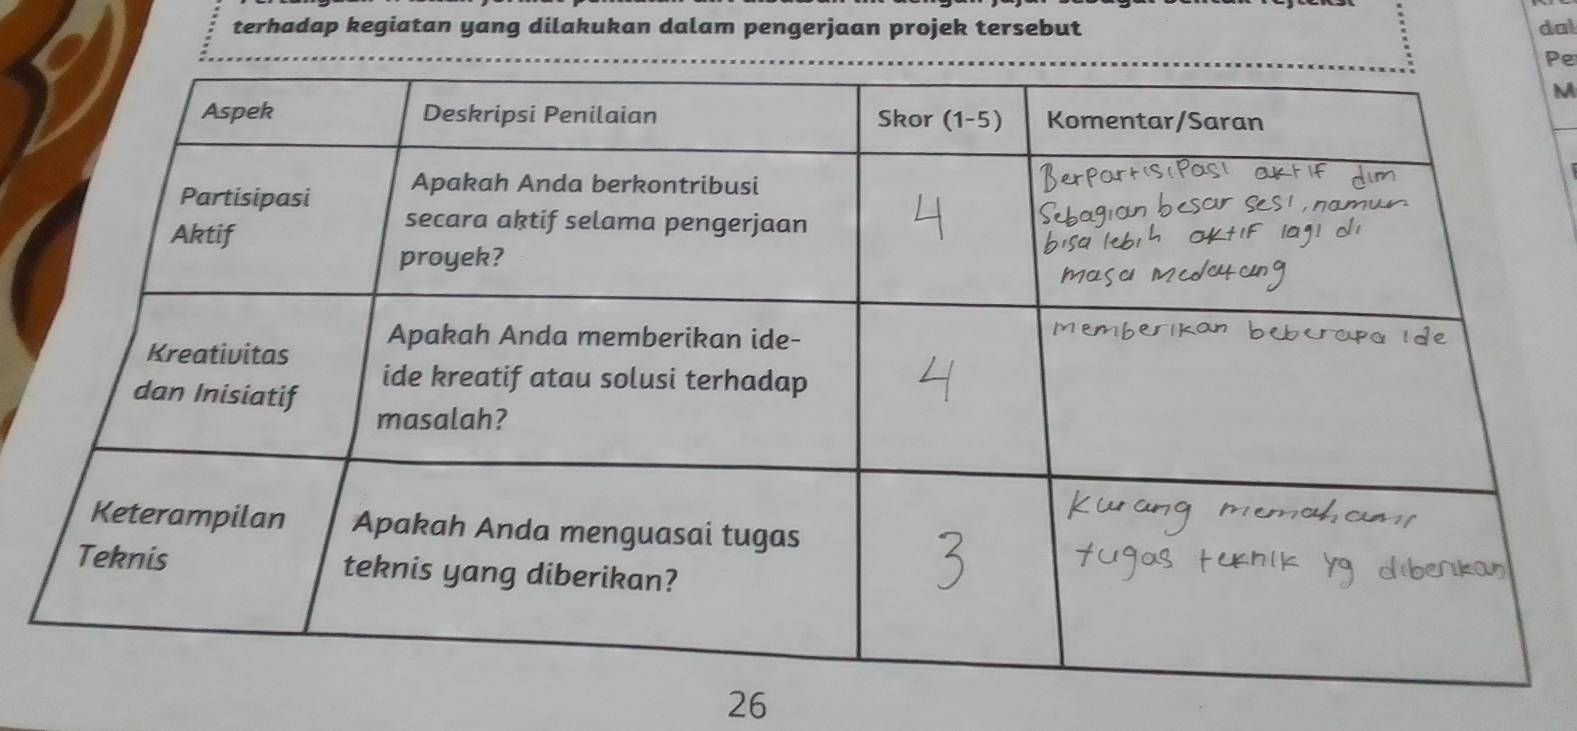 terhadap kegiatan yang dilakukan dalam pengerjaan projek tersebut
Aspek Deskripsi Penilaian Skor (1-5) Komentar/Saran
Partisipasi
Aktif
Apakah Anda berkontribusi
secara aktif selama pengerjaan
proyek?
4
Berpartisipasi aktif dlm
Sebagian besar sesi, namun
bisa lebih aktif lagi di
masa
Kreativitas
dan Inisiatif
Apakah Anda memberikan ide-
ide kreatif atau solusi terhadap
masalah?
4
memberikan beberapa ide
Keterampilan
Teknis
Apakah Anda menguasai tugas
teknis yang diberikan?
3
kurang memahami
tugas teknik yg diberikan
26